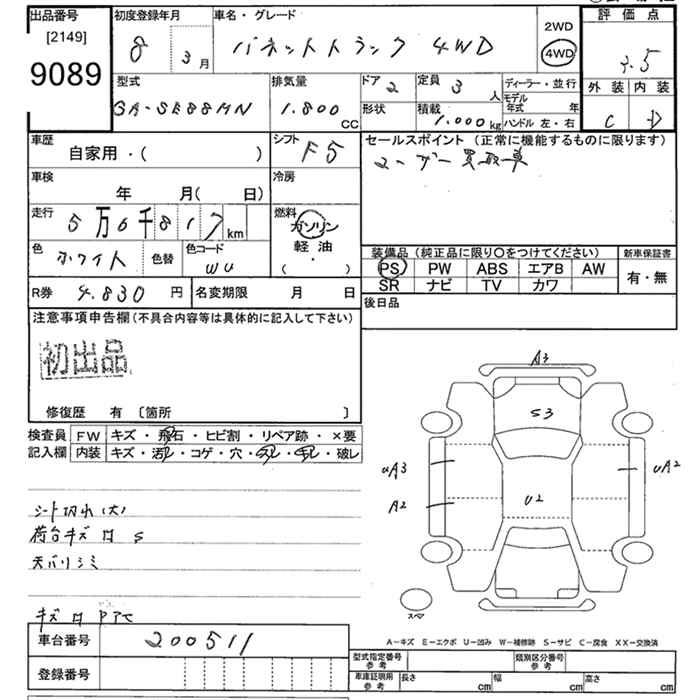 出品番号 初度登録年月 車名・グレード 評価点
[2149]
9089
8 3月 バネットトラック 4WD
2WD
4WD
外装 内装
C D
型式 排気量 ドア 2 定員 3人 ディーラー・並行
モデル年式 年
GA-SE88MN 1.800 CC 形状 積載 1.000kg ハンドル 左・右
車歴 自家用・( ) シフト F5
セールスポイント (正常に機能するものに限ります)
ユーザー買取車
車検 年 月( 日) 冷房
走行 5万6千817km 燃料 ガソリン 軽油 ( ・ )
色 ホワイト 色替 色コード WU
装備品(純正品に限り○をつけてください) 新車保証書
PS PW ABS エアB AW 有・無
SR ナビ TV カワ
R券 4.830円 名変期限 月 日
後日品
注意事項申告欄(不具合内容等は具体的に記入して下さい)
初出品
修復歴 有 〔箇所 〕
検査員記入欄
FW キズ・飛石・ヒビ割・リペア跡・×要
内装 キズ・汚レ・コゲ・穴・切レ・破レ
シート切れ(大)
荷台キズ凹 S
天バリシミ
キズ凹
A3
S3
UA3
A2
U2
UA2
スペア
A−キズ E−エクボ U−凹み W−補修跡 S−サビ C−腐食 XX−交換済
車台番号 200511
登録番号
型式指定番号参考 類別区分番号参考
車庫証明用参考 長さ cm 幅 cm 高さ cm